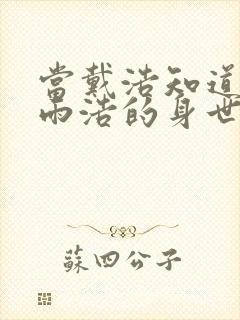 當戴浩知道
雨浩的身世
蘇四公子